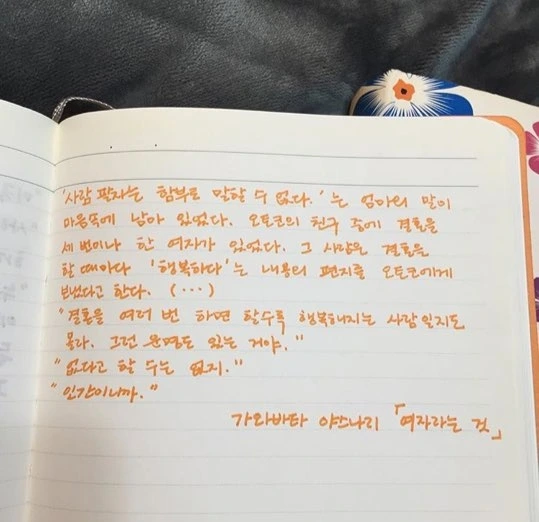 '사람 팔자는 함부로 말할 수 없다.'는 엄마의 말이
마음속에 남아 있었다. 오토코의 친구 중에 결혼을
세 번이나 한 여자가 있었다. 그 사람은 결혼을
할 때마다 '행복하다'는 내용의 편지를 오토코에게
보냈다고 한다. (···)
"결혼을 여러 번 하면 할수록 행복해지는 사람일지도
몰라. 그런 운명도 있는 거야."
"없다고 할 수는 없지."
"인간이니까."
가와바타 야스나리 「여자라는 것」